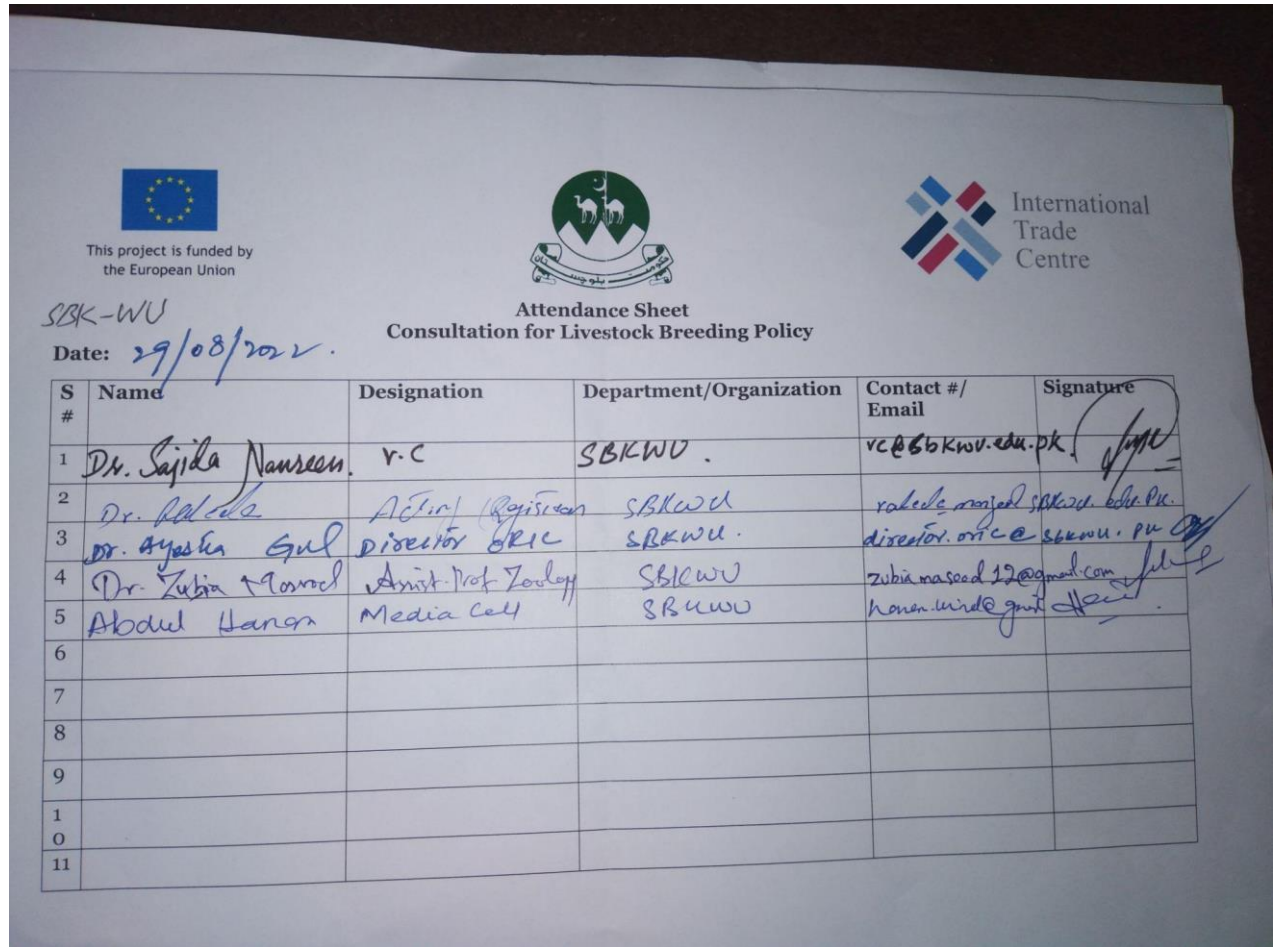 This project is funded by
the European Union
حکومت بلوچستان
International
Trade
Centre
SBK-WU
Attendance Sheet
Consultation for Livestock Breeding Policy
Date: 29/08/2022.
S # Name Designation Department/Organization Contact #/ Email Signature
1 Dr. Sajida Naureen. V.C SBKWU. vc@sbkwu.edu.pk
2 Dr. Acting SBKWU sbkwu.edu.pk.
3 Dr. Ayesha Gul Director ORIC SBKWU. director.oric@sbkwu.pk
4 Dr. Zubia Masood Assist. Prof Zoology SBKWU zubiamasood12@gmail.com
5 Abdul Hanan Media Cell SBKWU
6
7
8
9
10
11